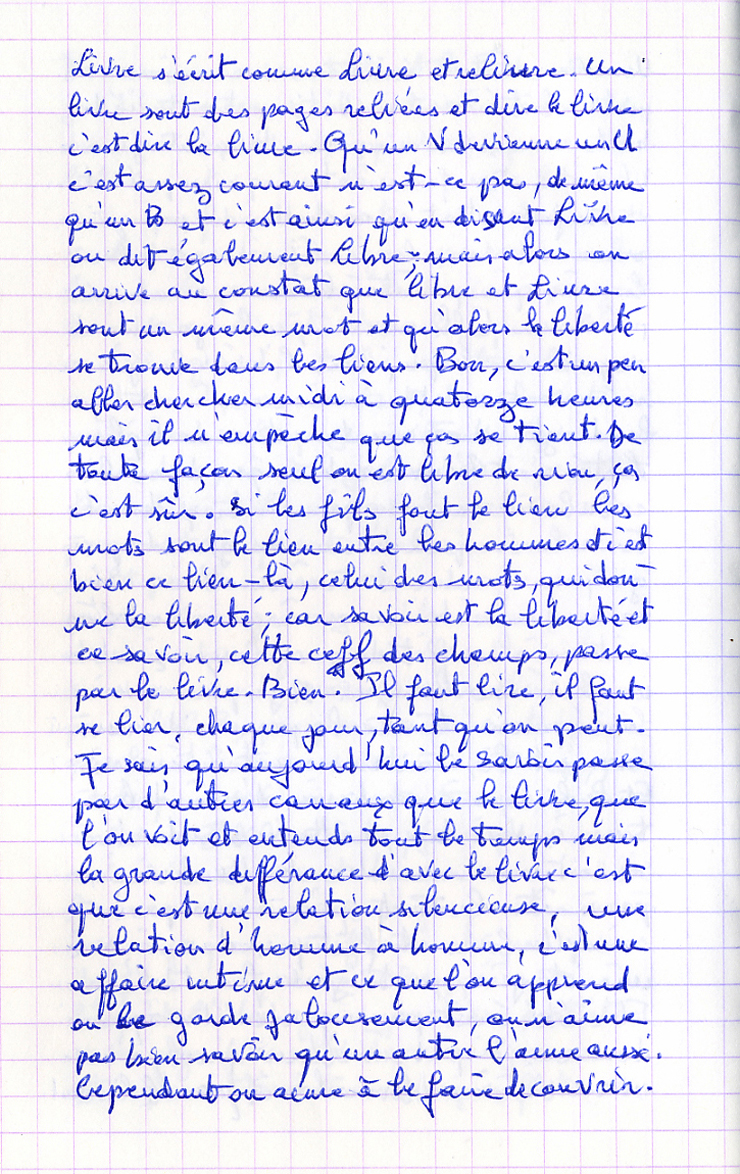 Livre s'écrit comme Liure et reliure. Un
livre sont des pages reliées et dire le livre
c'est dire la liure. Qu'un V devienne un U
c'est assez courant n'est-ce pas, de même
qu'un B et c'est ainsi qu'en disant Livre
on dit également libre; mais alors on
arrive au constat que libre et Liure
sont un même mot et qu'alors la liberté
se trouve dans les liens. Bon, c'est un peu
aller chercher midi à quatorze heures
mais il n'empêche que ça se tient. De
toute façon seul on est libre de rien, ça
c'est sûr. Si les fils font le lien les
mots sont le lien entre les hommes et c'est
bien ce lien-là, celui des mots, qui don-
ne la liberté; car savoir est la liberté et
ce savoir, cette ceff des champs, passe
par le livre. Bien. Il faut lire, il faut
se lier, chaque jour, tant qu'on peut.
Je sais qu'aujourd'hui le savoir passe
par d'autres canaux que le livre, que
l'on voit et entends tout le temps mais
la grande différance d'avec le livre c'est
que c'est une relation silencieuse, une
relation d'homme à homme, c'est une
affaire intime et ce que l'on apprend
on le garde jalousement, on n'aime
pas bien savoir qu'un autre l'aime aussi.
Cependant on aime à le faire decouvrir.